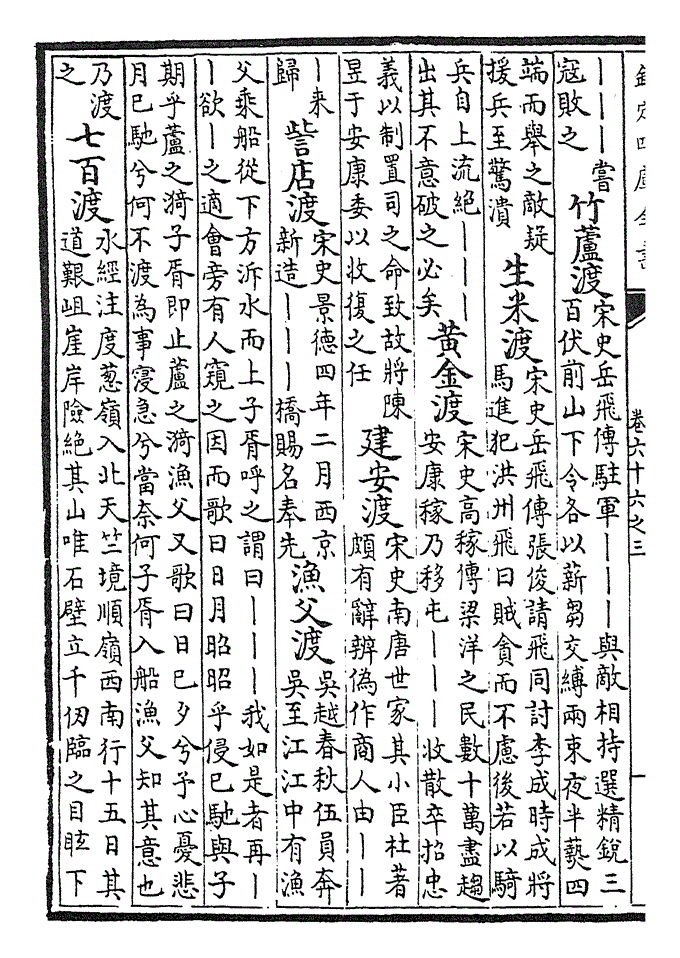 欽定四庫全書
卷六十六之三
｜｜｜嘗
寇敗之
竹蘆渡
宋史岳飛傳駐軍｜｜｜與敵相持選精銳三
百伏前山下令各以薪芻交縛兩束夜半爇四
端而舉之敵疑
援兵至驚潰
生米渡
宋史岳飛傳張俊請飛同討李成時成將
馬進犯洪州飛曰賊貪而不慮後若以騎
兵自上流絕｜｜｜
出其不意破之必矣
黃金渡
宋史高稼傳梁洋之民數十萬盡趨
安康稼乃移屯｜｜｜收散卒招忠
義以制置司之命致故將陳
昱于安康委以收復之任
建安渡
宋史南唐世家其小臣杜著
頗有辭辨偽作商人由｜｜
｜来
歸
訾店渡
宋史景德四年二月西京
新造｜｜｜橋賜名奉先
漁父渡
吳越春秋伍員奔
吳至江江中有漁
父乘船從下方泝水而上子胥呼之謂曰｜｜｜我如是者再｜
｜欲｜之適會旁有人窺之因而歌曰日月昭昭乎侵已馳與子
期乎蘆之漪子胥即止蘆之漪漁父又歌曰日已夕兮予心憂悲
月已馳兮何不渡為事寖急兮當奈何子胥入船漁父知其意也
乃渡
之
七百渡
水經注度蔥嶺入北天竺境順嶺西南行十五日其
道艱岨崖岸險絕其山唯石壁立千仞臨之目眩下